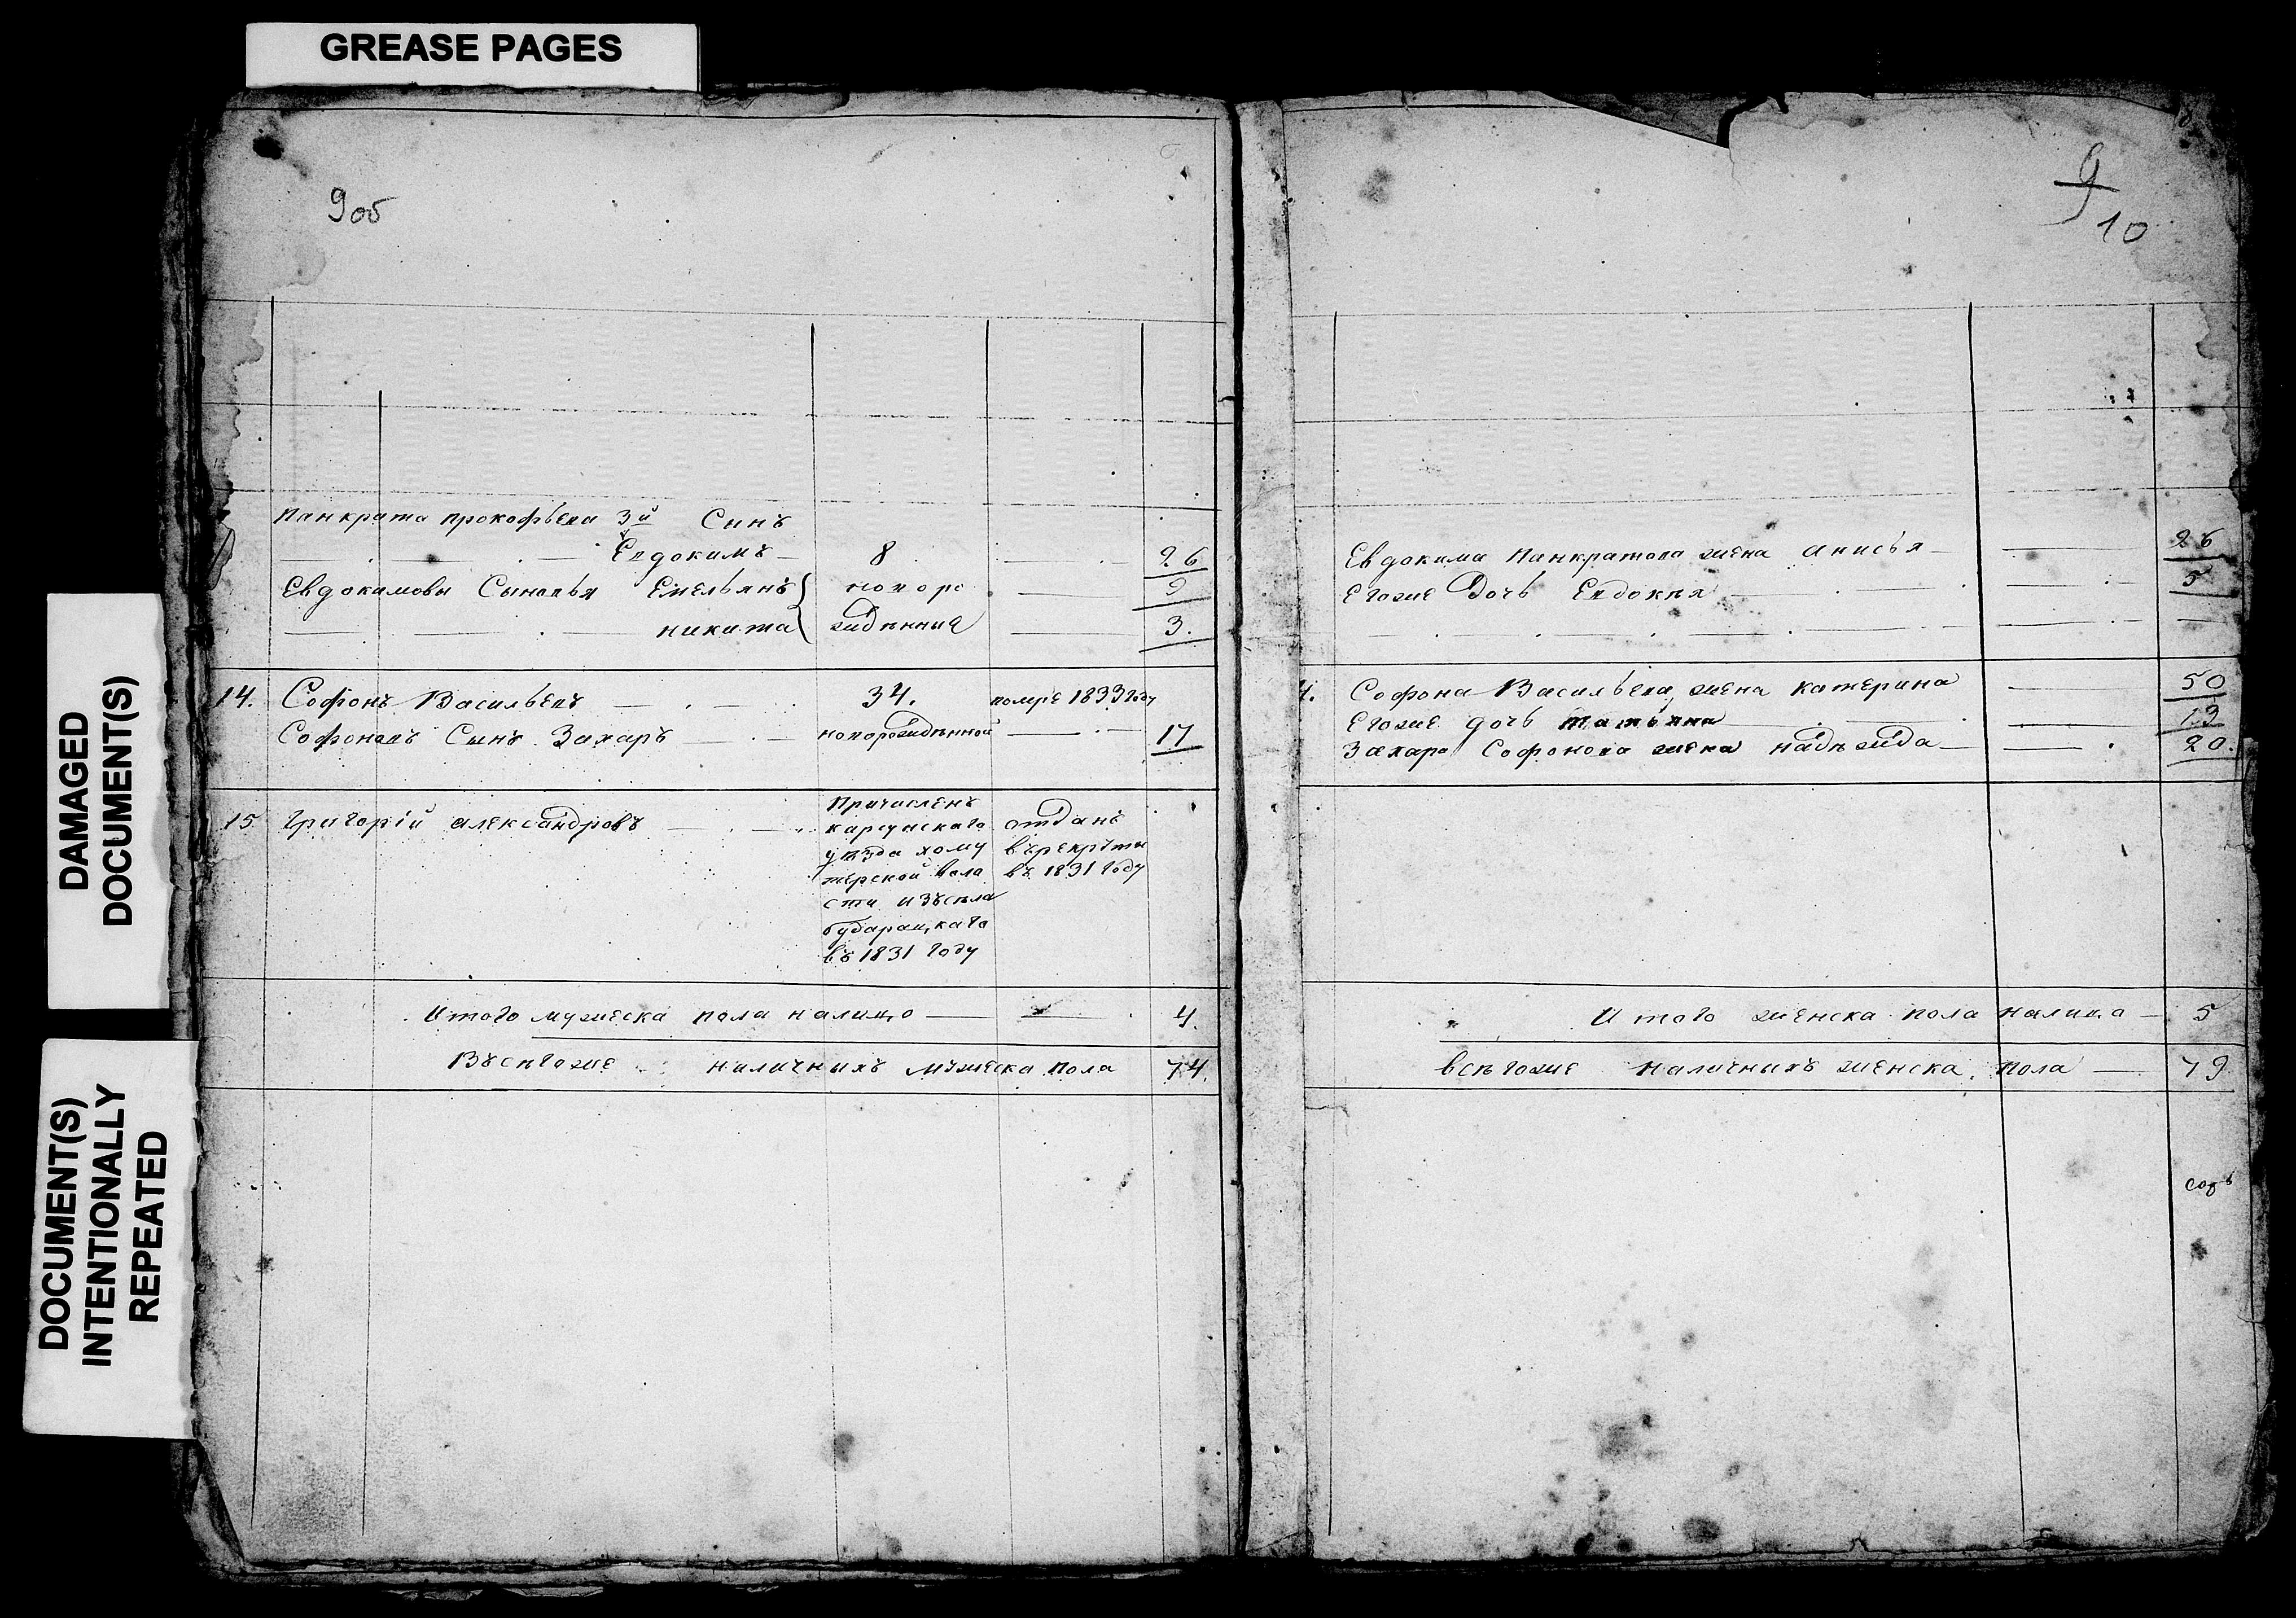 GREASE PAGES
DAMAGED
DOCUMENT(S)
DOCUMENT(S)
INTENTIONALLY
REPEATED
9об
Панкрата прокофьева 3й Сынъ
Евдокимъ 8 26
Евдокимовы Сыновья Емельянъ новоро 9
никита жденныя 3.
14. Софонъ Васильевъ 34. помре 1833 году
Софоновъ Сынъ Захаръ новорожденной 17
15 Григорій александровъ
Причисленъ
карсунскаго
уезда хому
терской воло
сти изъ села
в 1831 году
отданъ
въ рекруты
въ 1831 году
Итого мужеска пола налицо 4.
Въсегоже наличныхъ мужеска пола 74.
9
10
Евдокима Панкратова жена анисья 26
Егоже Дочь Евдокея 5
4. Софона Васильева жена катерина 50
Егоже дочь татьяна 13
Захара Софонова жена надежда 20.
Итого женска пола налицо 5
всегоже наличныхъ женска пола 79